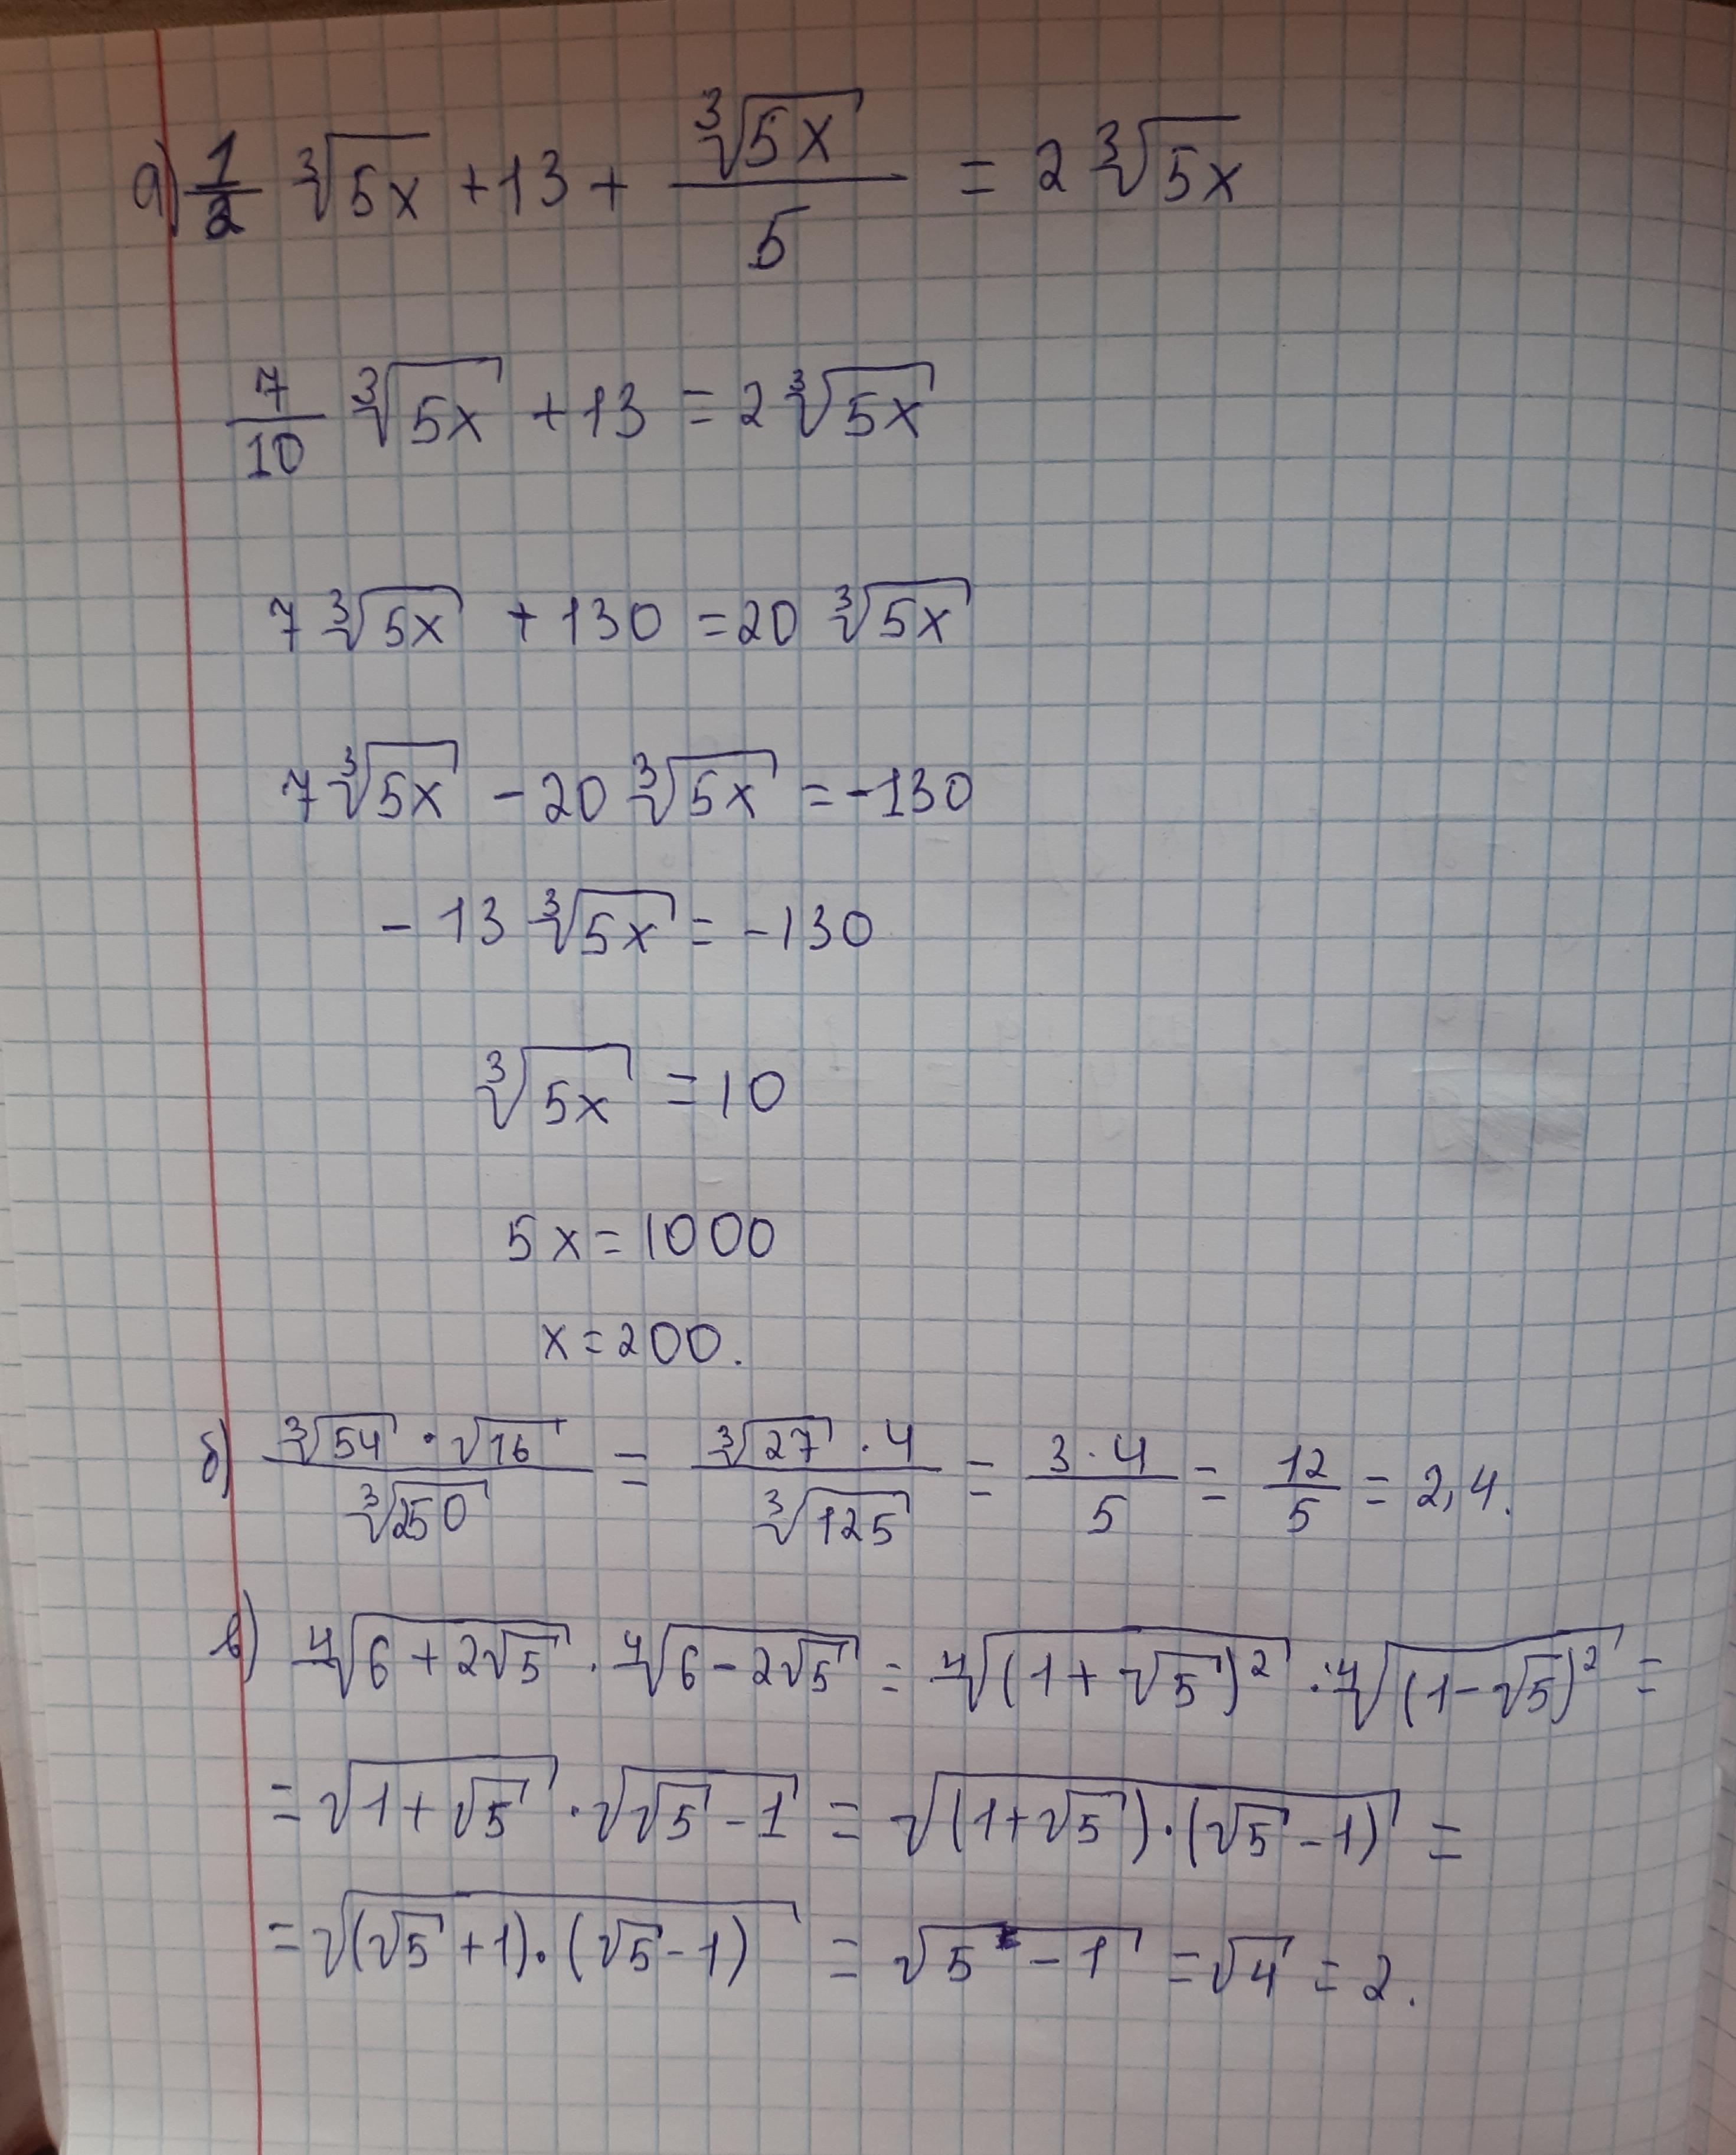 а) 1/2 ∛5x + 13 + ∛5x/5 = 2 ∛5x
7/10 ∛5x + 13 = 2 ∛5x
7 ∛5x + 130 = 20 ∛5x
7 ∛5x - 20 ∛5x = -130
- 13 ∛5x = -130
∛5x = 10
5x = 1000
x = 200.
б) (∛54 · √16)/∛250 = (∛27 · 4)/∛125 = (3 · 4)/5 = 12/5 = 2,4.
в) ∜(6 + 2√5) · ∜(6 - 2√5) = ∜((1 + √5)²) · ∜((1 - √5)²) =
= √(1 + √5) · √(√5 - 1) = √((1 + √5) · (√5 - 1)) =
= √((√5 + 1) · (√5 - 1)) = √(5 - 1) = √4 = 2.